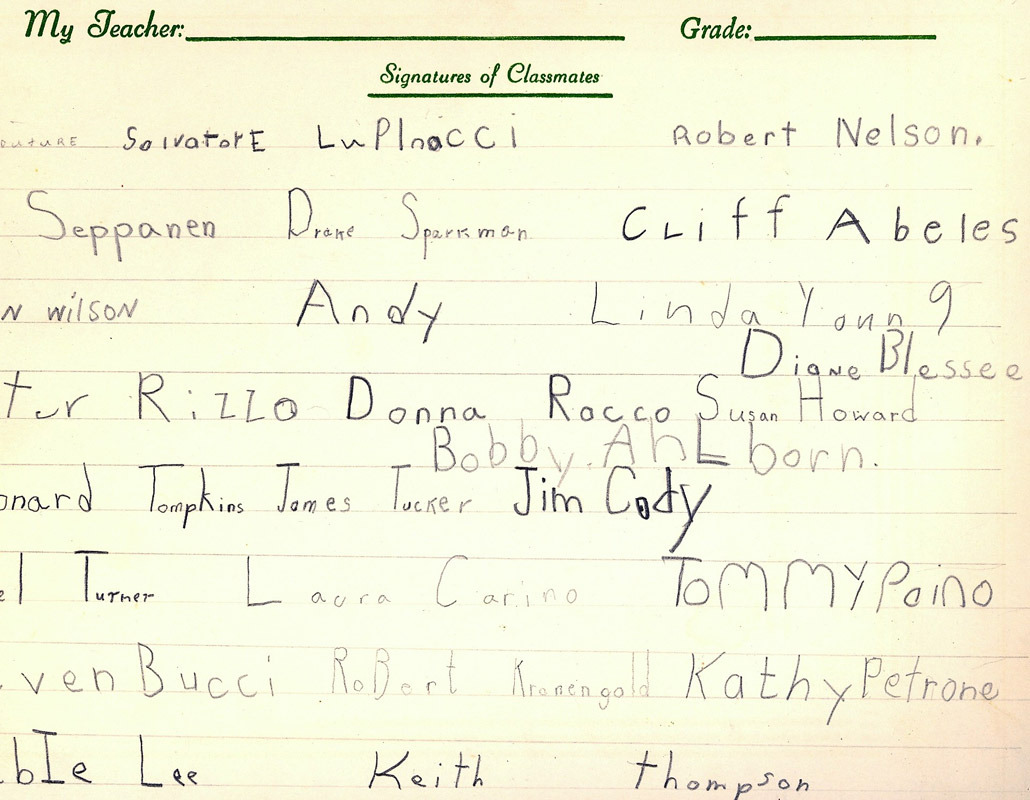 My Teacher: Grade:
Signatures of Classmates
SalvatorE LuPInacci Robert Nelson.
Seppanen Drake Sparkman Cliff Abeles
N WilSON Andy Linda Young
Diane Blessee
ter RizZo Donna Rocco Susan Howard
Bobby. AhLborn.
onard Tompkins James Tucker Jim Cody
el Turner Laura Carino ToMMY Paino
ven Bucci RoBert Kronengold Kathy Petrone
bIe Lee Keith thompson